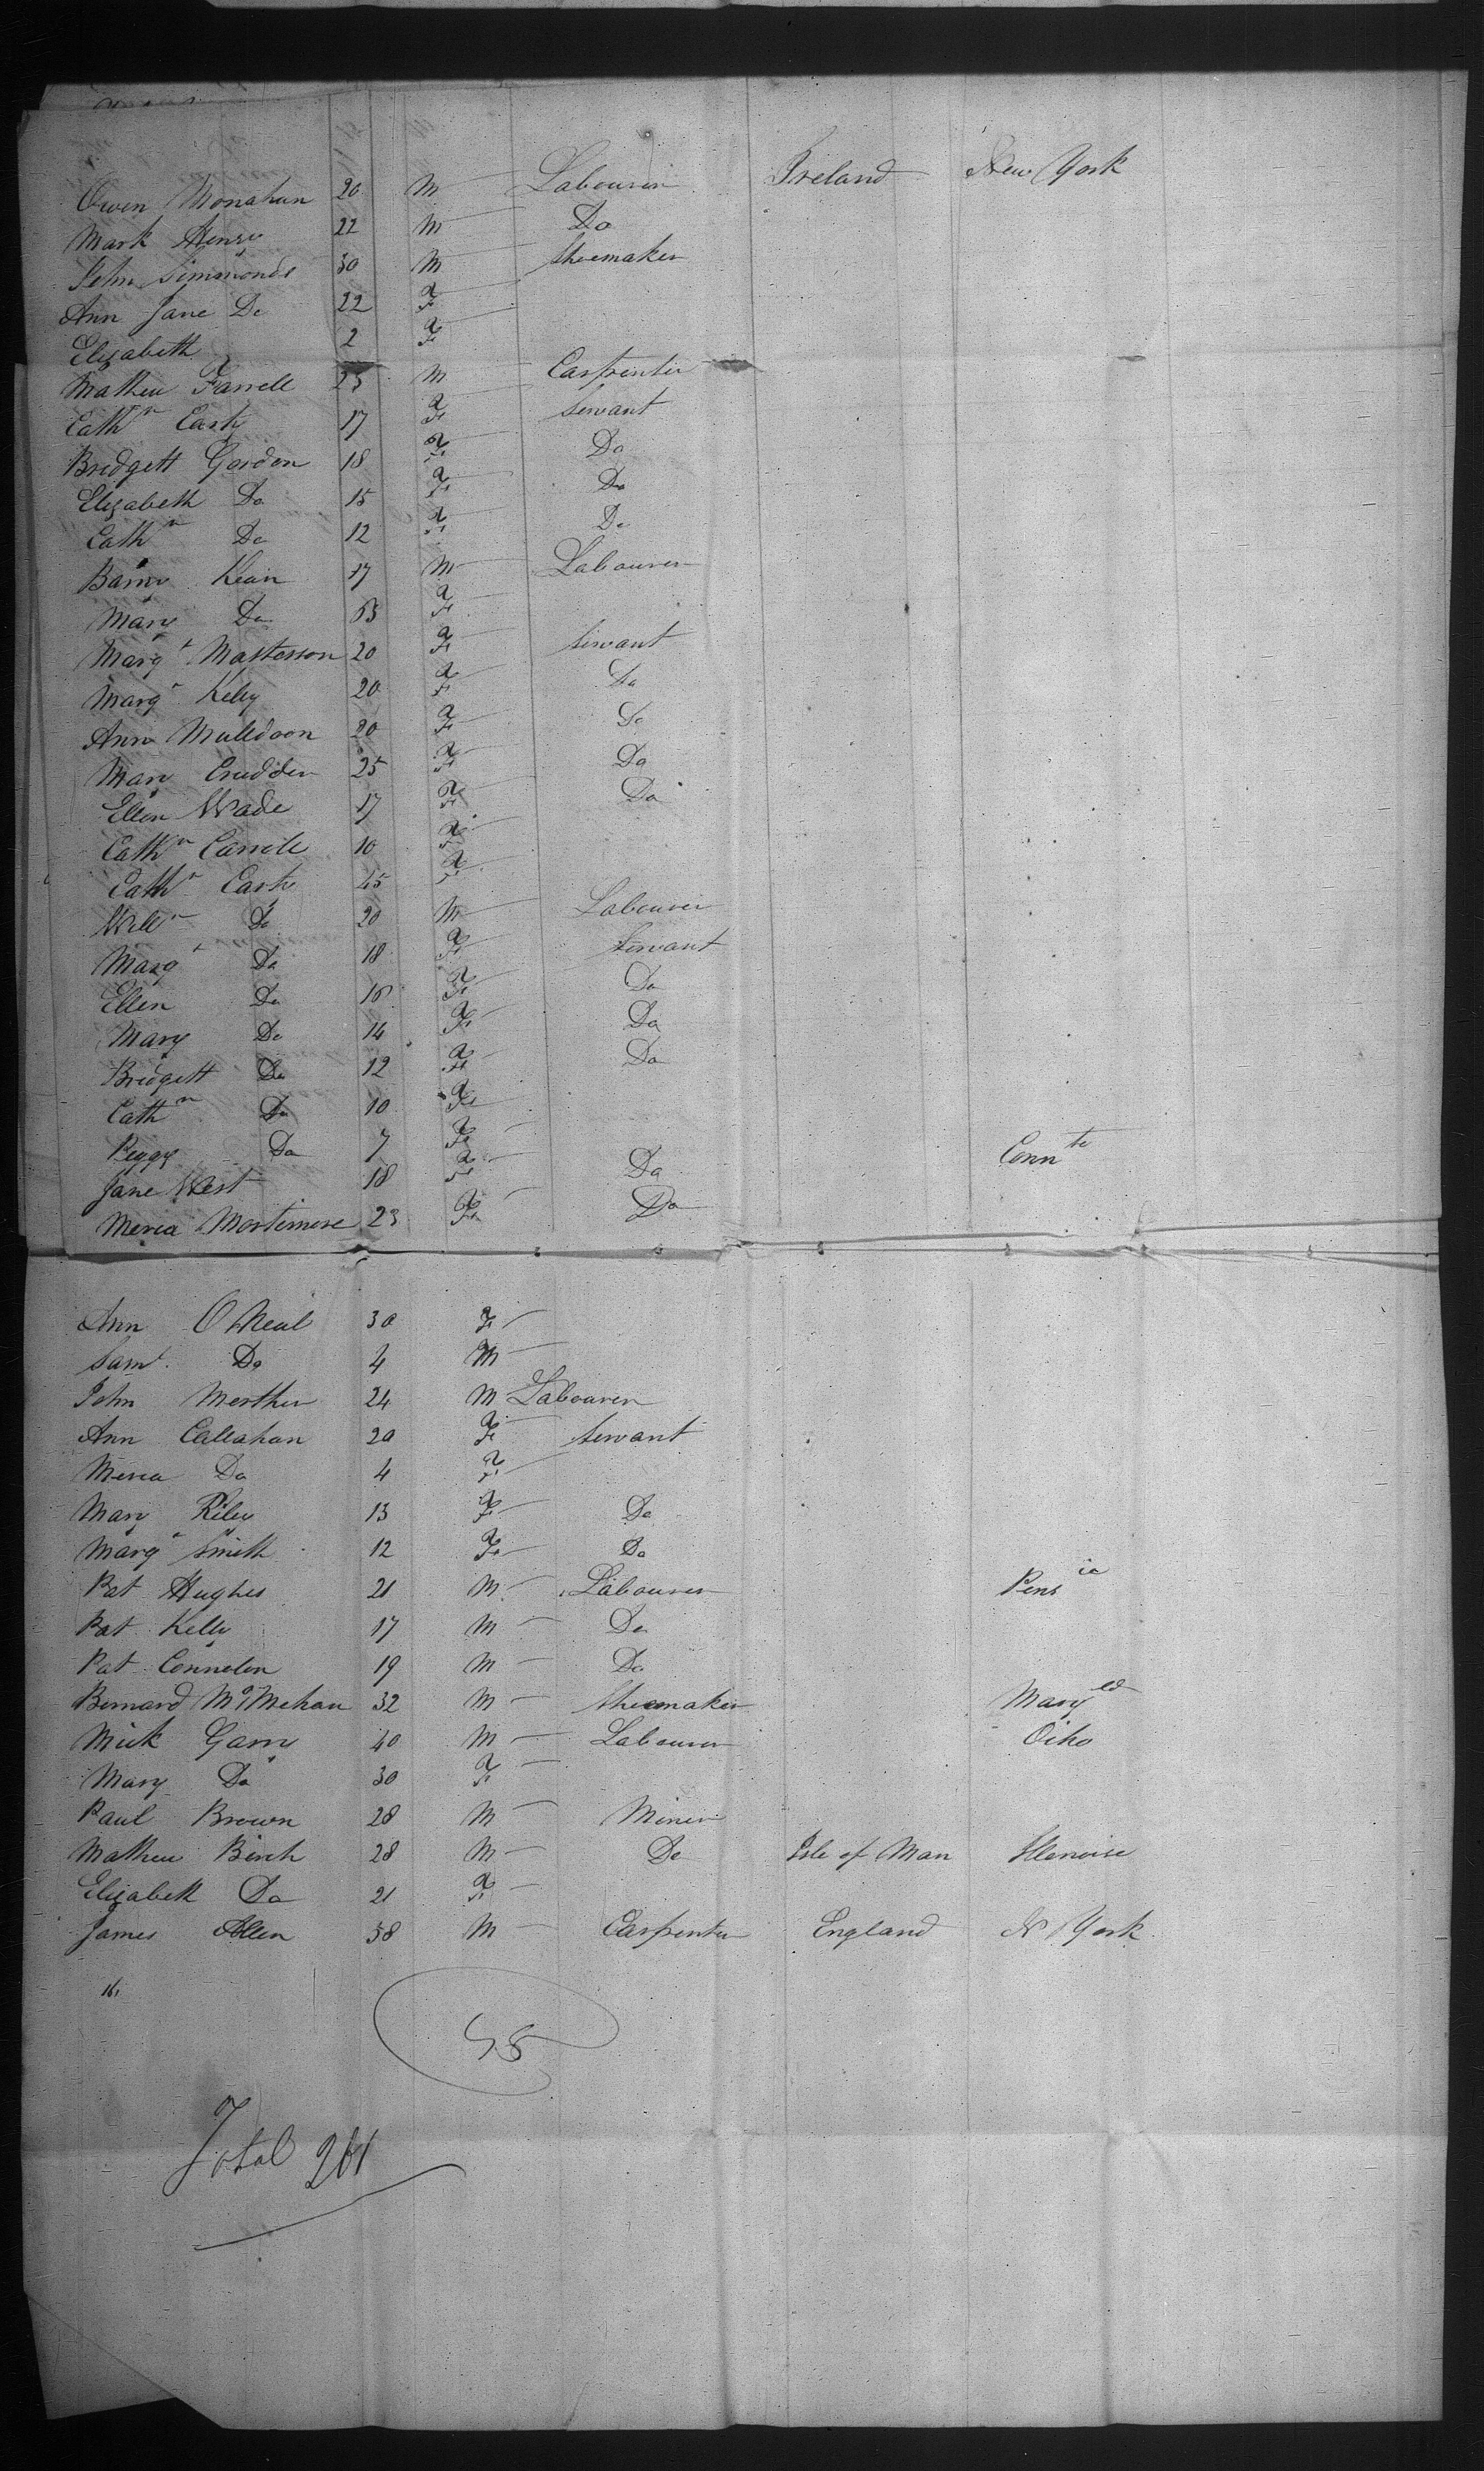 Owen Monahan 20 M Labourer Ireland New York
Mark Henry 22 M Do
John Simmonds 30 M Shoemaker
Ann Jane Do 22 F
Elizabeth 2 F
Mathew Farrell 25 M Carpenter
Cathn Casty 17 F Servant
Bredgett Gordon 18 F Do
Elizabeth Do 15 F Do
Cathn Do 12 F Do
Barny Kean 17 M Labourer
Mary Do F
Margt Mastesson 20 F Servant
Margt Kelly 20 F Do
Ann Muldoon 20 F Do
Mary Crudden 25 F Do
Ellen Wade 17 F Do
Cathn Carrole 10 F
Cathn Casty 45 F
Willm Do 20 M Labourer
Margt Do 18 F Servant
Ellen Do 16 F Do
Mary Do 14 F Do
Bredgett Do 12 F Do
Cathn Do 10 F
Peggy Do 7 F
Jane West 18 F Do Connte
Merea Mortemore 23 F Do
Ann O Neal 30 F
Saml Do 4 M
John Merther 24 M Labourer
Ann Callahan 20 F Servant
Merea Do 4 F
Mary Riley 13 F Do
Margt Smith 12 F Do
Pat Hughes 21 M Labourer Pensia
Pat Kelly 17 M Do
Pat Connelon 19 M Do
Bernard McMehan 32 M Shoemaker Maryld
Mick Garry 40 M Labourer Oiho
Mary Do 30 F
Paul Brown 28 M Miner
Mathew Birch 28 M Do Isle of Man Illenoise
Elizabeth Do 21 F
James Allen 38 M Carpenter England N York
16
45
Total 261